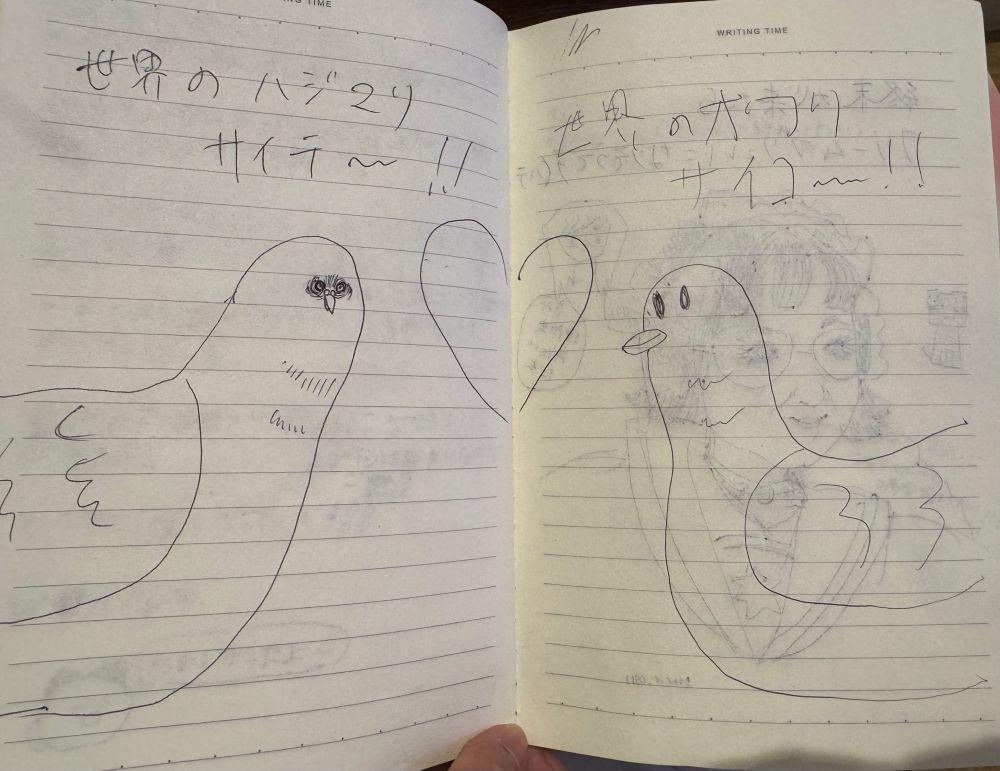 NG TIME
世界のハジマリ
サイテ〜!!
WRITING TIME
世界のオワリ
サイコ〜!!